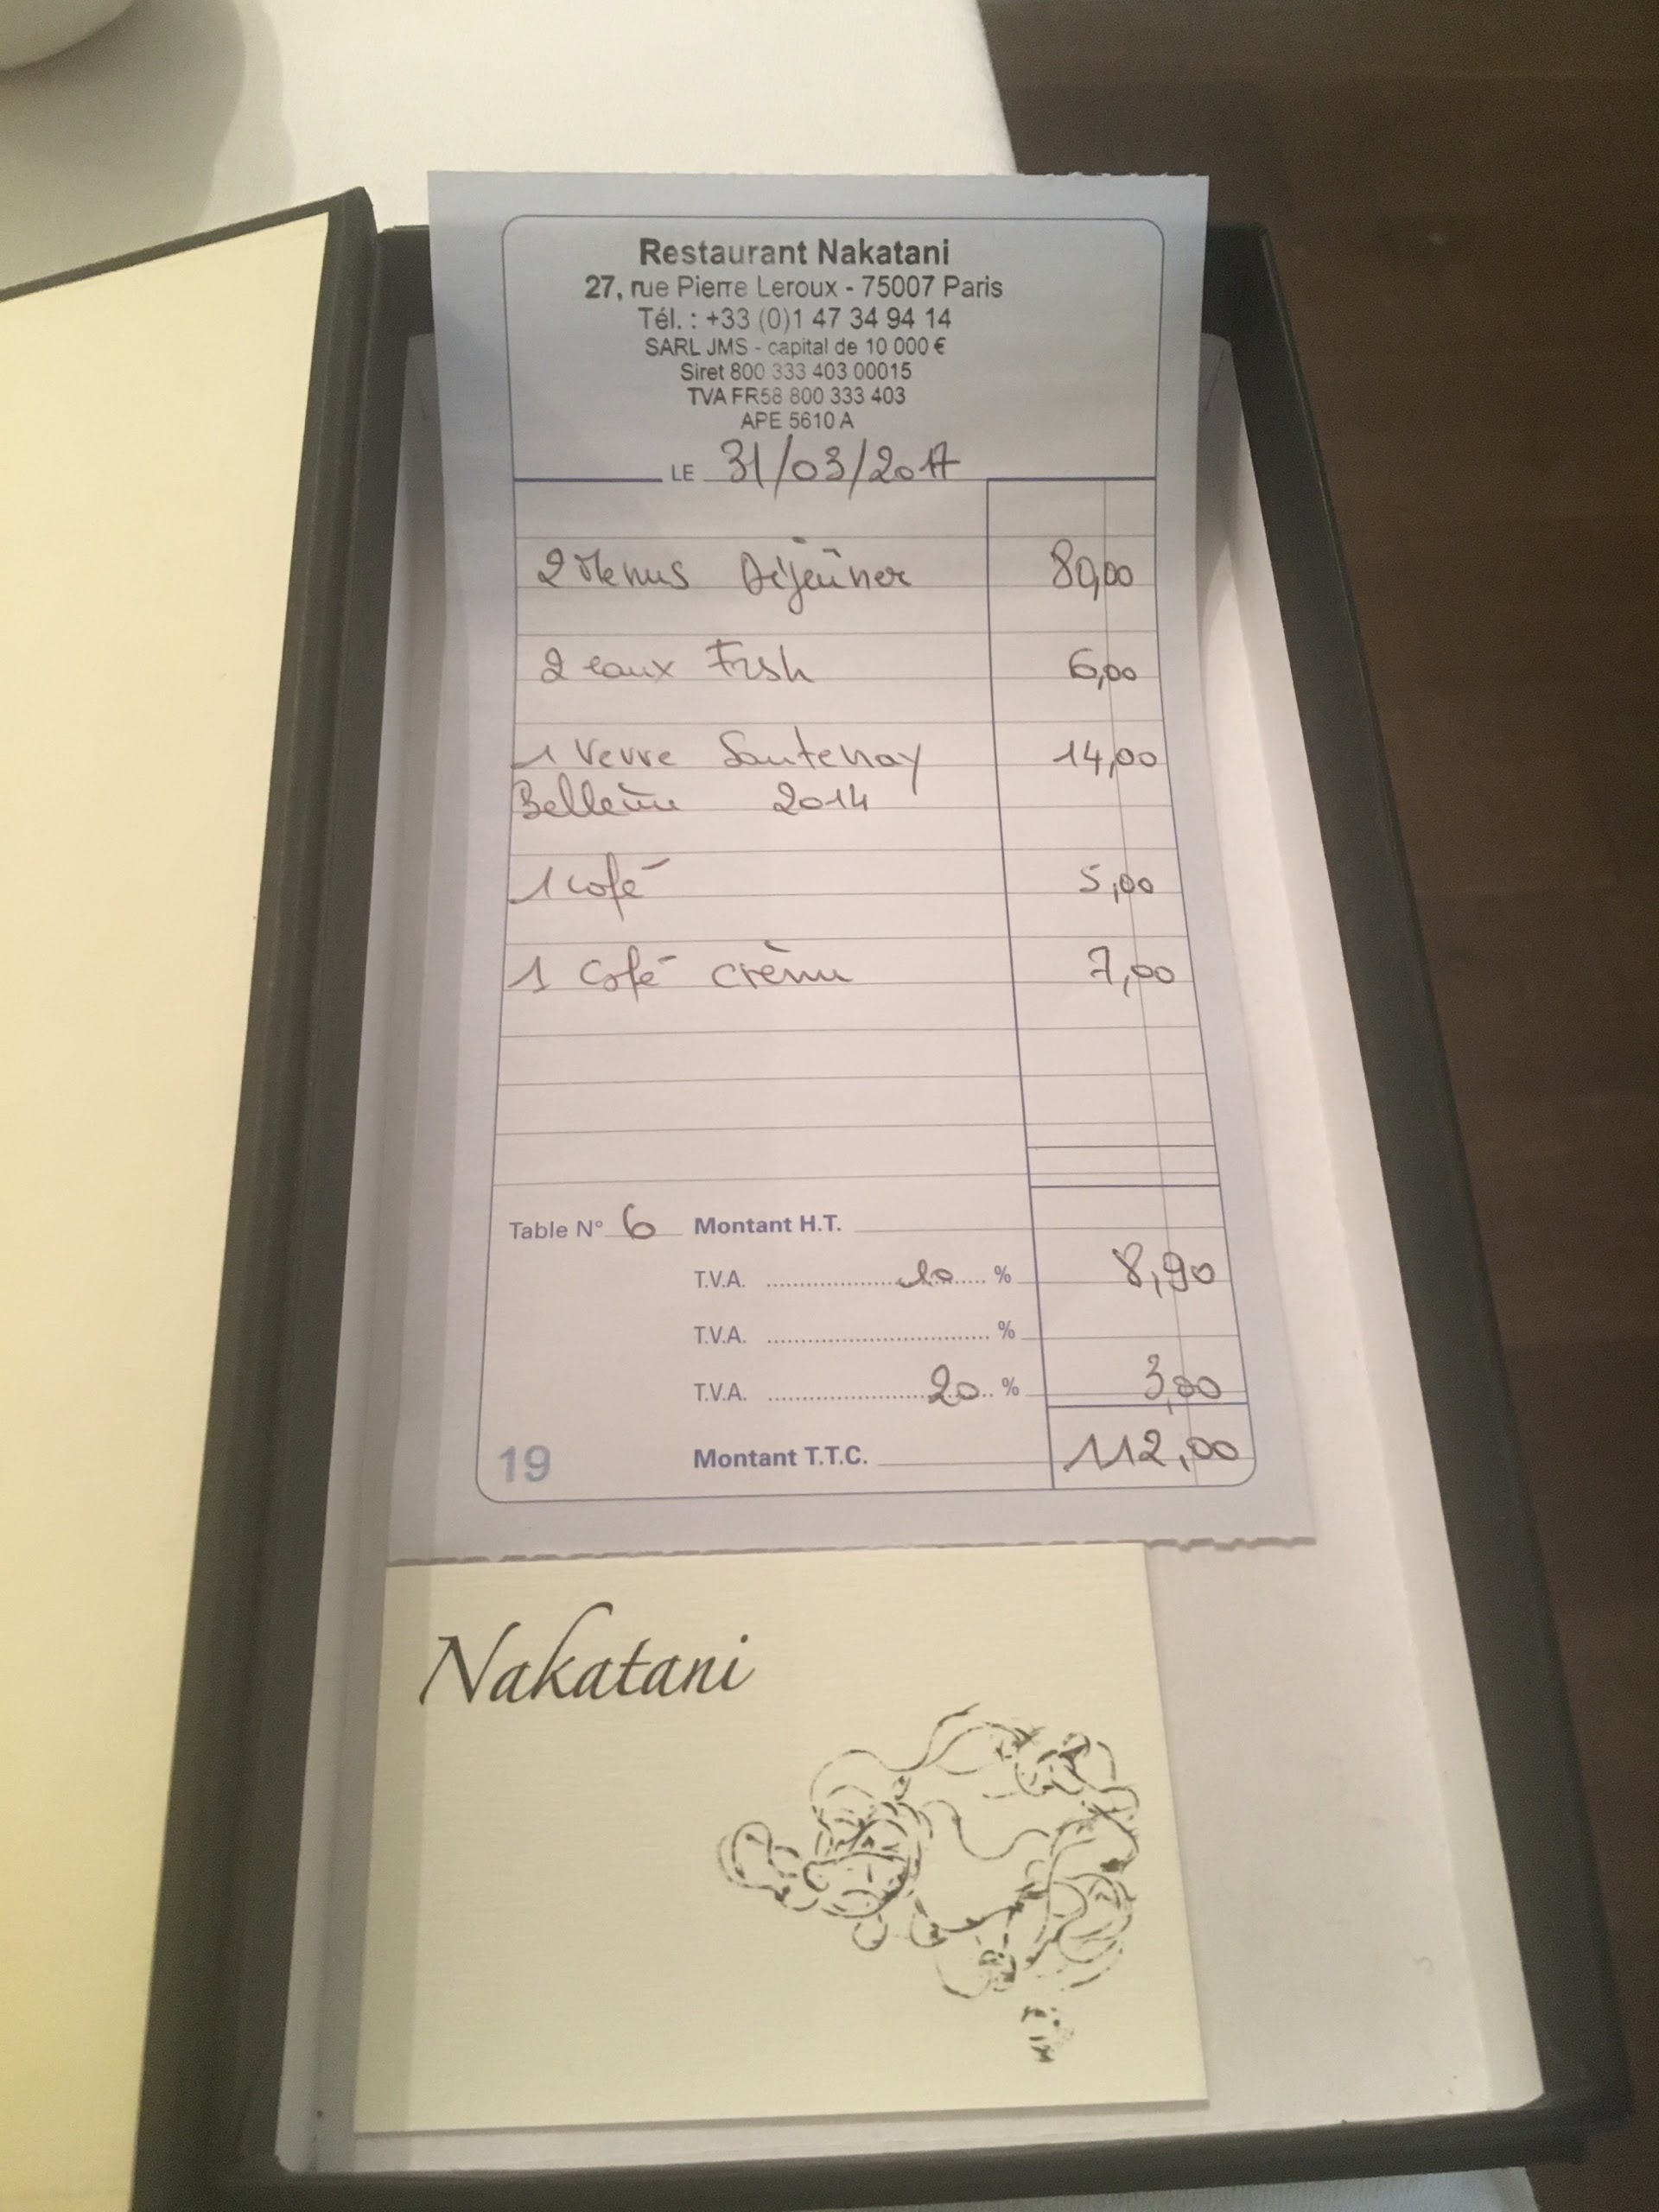 Restaurant Nakatani
27, rue Pierre Leroux - 75007 Paris
Tél. : +33 (0)1 47 34 94 14
SARL JMS - capital de 10 000 €
Siret 800 333 403 00015
TVA FR58 800 333 403
APE 5610 A
LE 31/03/2017
2 Menus Déjeûner 80,00
2 eaux Fizsh 6,00
1 Verre Santenay 14,00
2014
1 Café 5,00
1 Café crème 7,00
Table N° 6 Montant H.T.
T.V.A. 10 % 8,90
T.V.A. %
T.V.A. 20 % 3,00
19 Montant T.T.C. 112,00
Nakatani